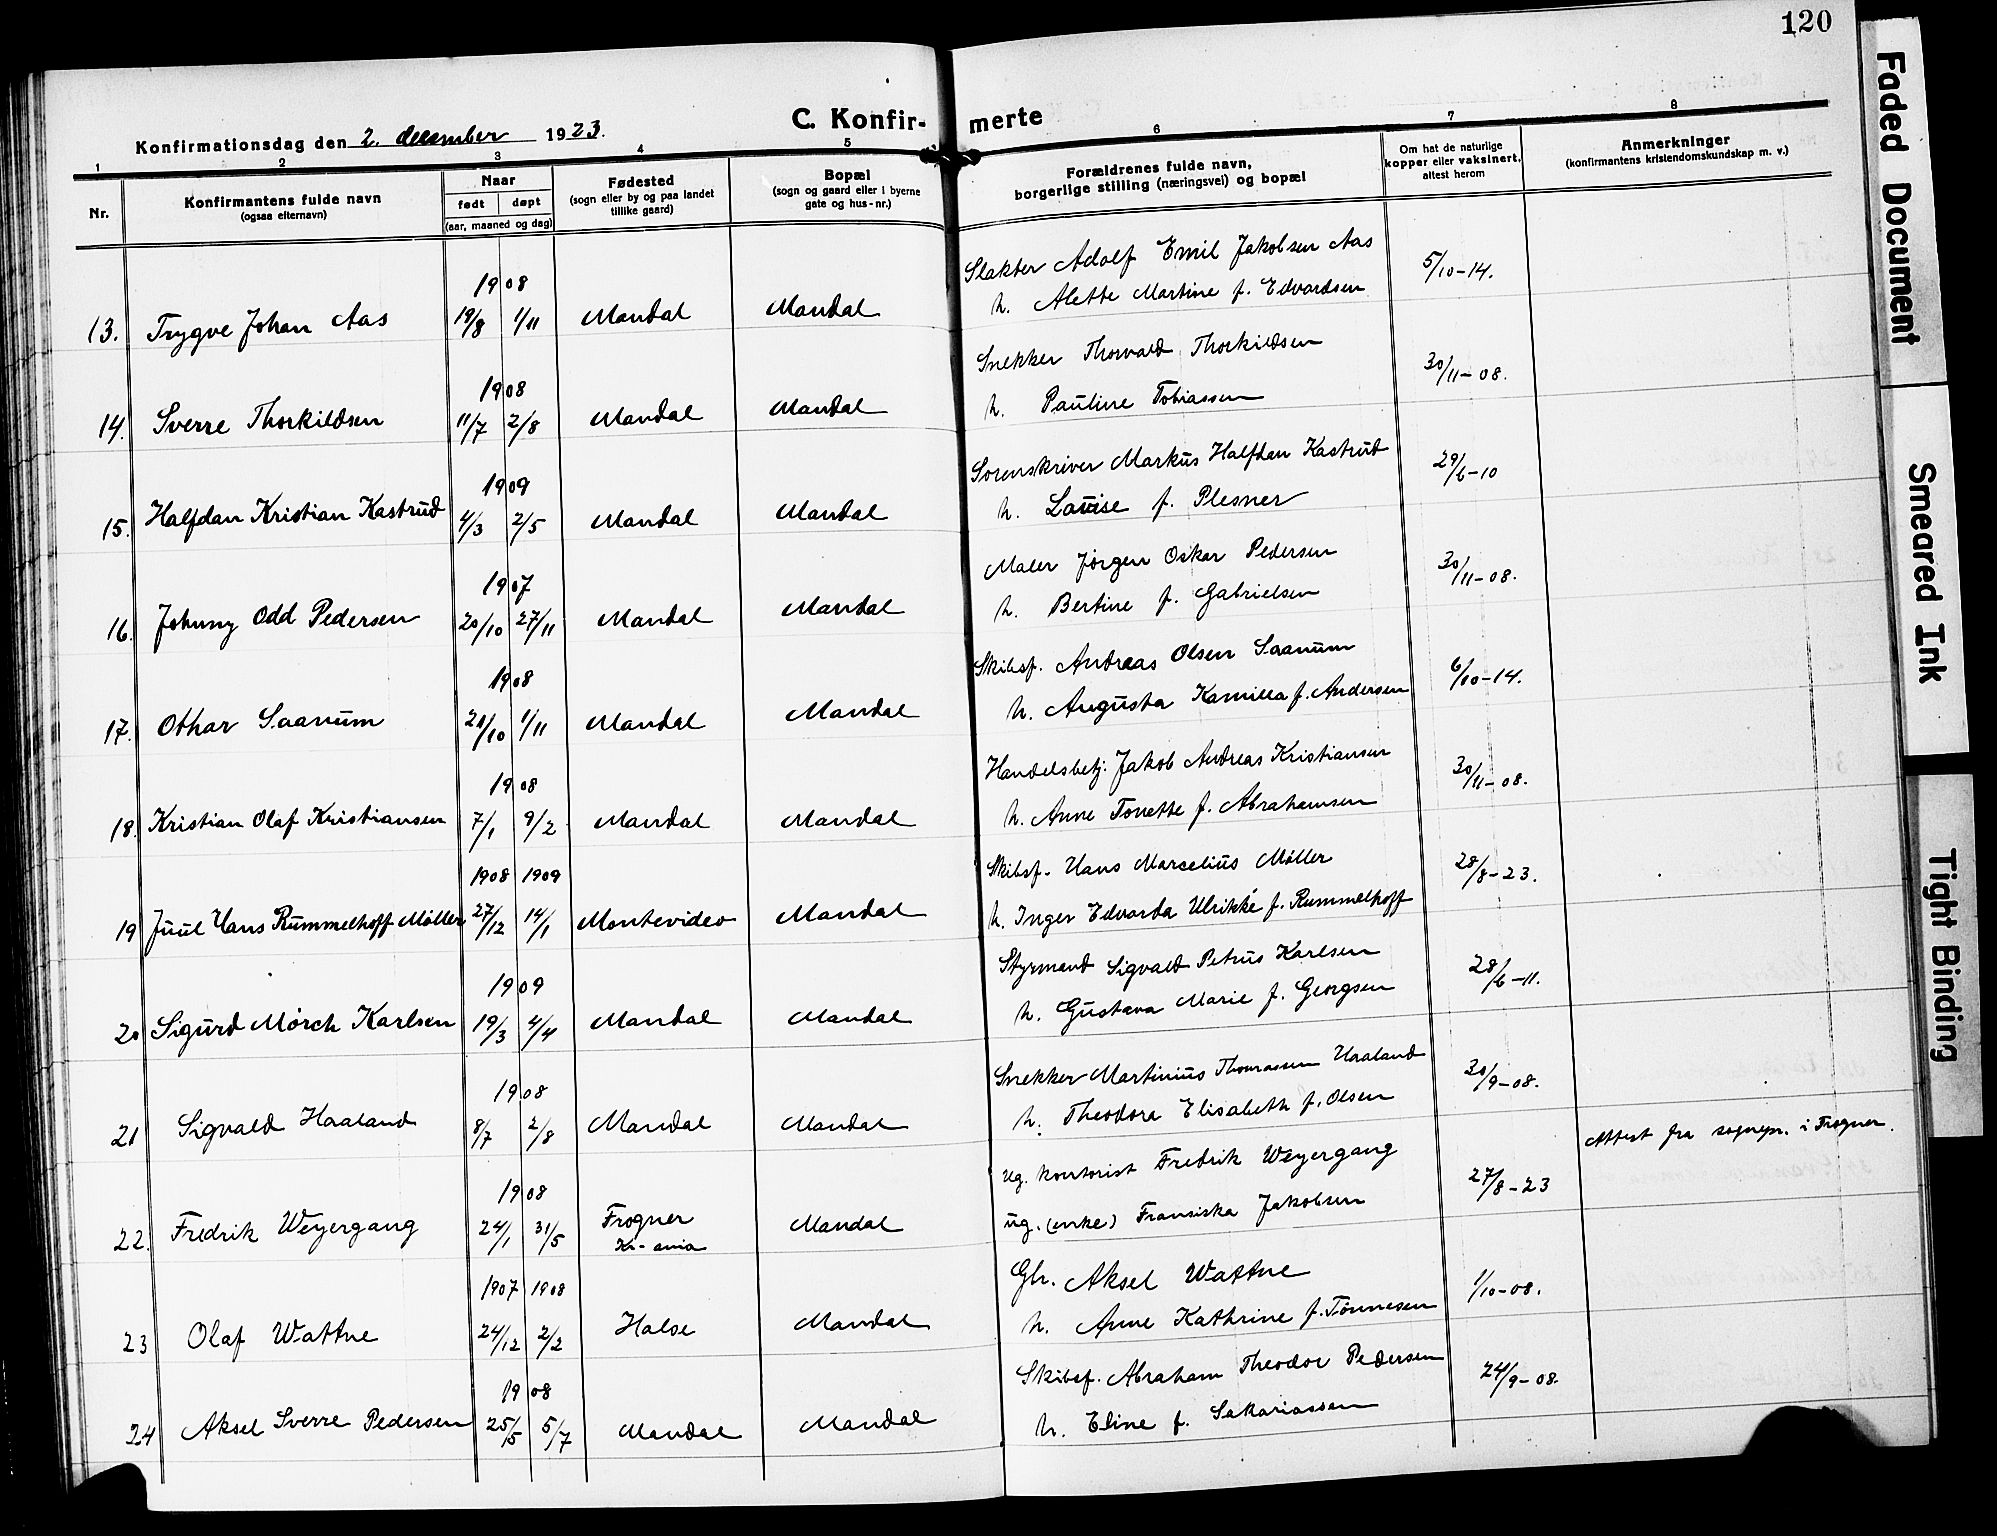 120
Konfirmationsdag den 2. december 1923.
C. Konfir- merte
1 2 3 4 5 6 7 8
Nr.
Konfirmantens fulde navn
(ogsaa efternavn)
Naar
født døpt
(aar, maaned og dag)
Fødested
(sogn eller by og paa landet
tillike gaard)
Bopæl
(sogn og gaard eller i byerne
gate og hus-nr.)
Forældrenes fulde navn,
borgerlige stilling (næringsvei) og bopæl
Om hat de naturlige
kopper eller vaksinert,
attest herom
Anmerkninger
(konfirmantens kristendomskundskap m. v.)
1908
13. Trygve Johan Aas 19/8 1/11 Mandal Mandal
Slakter Adolf Emil Jakobsen Aas
h. Alette Martine f. Edvardsen
5/10-14.
1908
14. Sverre Thorkildsen 11/7 2/8 Mandal Mandal
Snekker Thorvald Thorkildsen
h. Pauline Tobiassen
30/11-08.
1909
15. Halfdan Kristian Kastrud 4/3 2/5 Mandal Mandal
Sorenskriver Markus Halfdan Kastrud
h. Louise f. Plesner
29/6-10
1907
16. Johnny Odd Pedersen 20/10 27/11 Mandal Mandal
Maler Jørgen Oskar Pedersen
h. Bertine f. Gabrielsen
30/11-08.
1908
17. Othar Saanum /10 1/11 Mandal Mandal
Skibsf. Andreas Olsen Saanum
h. Augusta Kamilla f. Andersen
6/10-14.
1908
18. Kristian Olaf Kristiansen 7/1 9/2 Mandal Mandal
Handelsbetj. Jakob Andreas Kristiansen
h. Anne Tonette f. Abrahamsen
30/11-08.
1908 1909
19 Juul Hans Rummelhoff Møller 27/12 14/1 Montevideo Mandal
Skibsf. Hans Marcelius Møller
h. Inger Edvarda Ulrikke f. Rummelhoff
28/8-23.
1909
20 Sigurd Mørch Karlsen 19/3 4/4 Mandal Mandal
Styrmand Sigvald Petrus Karlsen
h. Gustava Marie f. Georgsen
28/6-11.
1908
21 Sigvald Haaland 8/7 2/8 Mandal Mandal
Snekker Martinius Thomassen Haaland
h. Theodora Elisabeth f. Olsen
30/9-08.
1908
22. Fredrik Weyergang 24/1 31/5 Frogner
Kr-ania
Mandal
ug. kontorist Fredrik Weyergang
ug. (enke) Fransiska Jakobsen
27/8-23
Attest fra sognepr. i Frogner.
1907 1908
23 Olaf Wattne 24/12 2/2 Halse Mandal
Gbr. Aksel Wattne
h. Anne Kathrine f. Tønnesen
1/10-08.
1908
24 Aksel Sverre Pedersen 25/5 5/7 Mandal Mandal
Skibsf. Abraham Theodor Pedersen
h. Eline f. Sakariassen
24/9-08.
Faded Document
Smeared Ink
Tight Binding